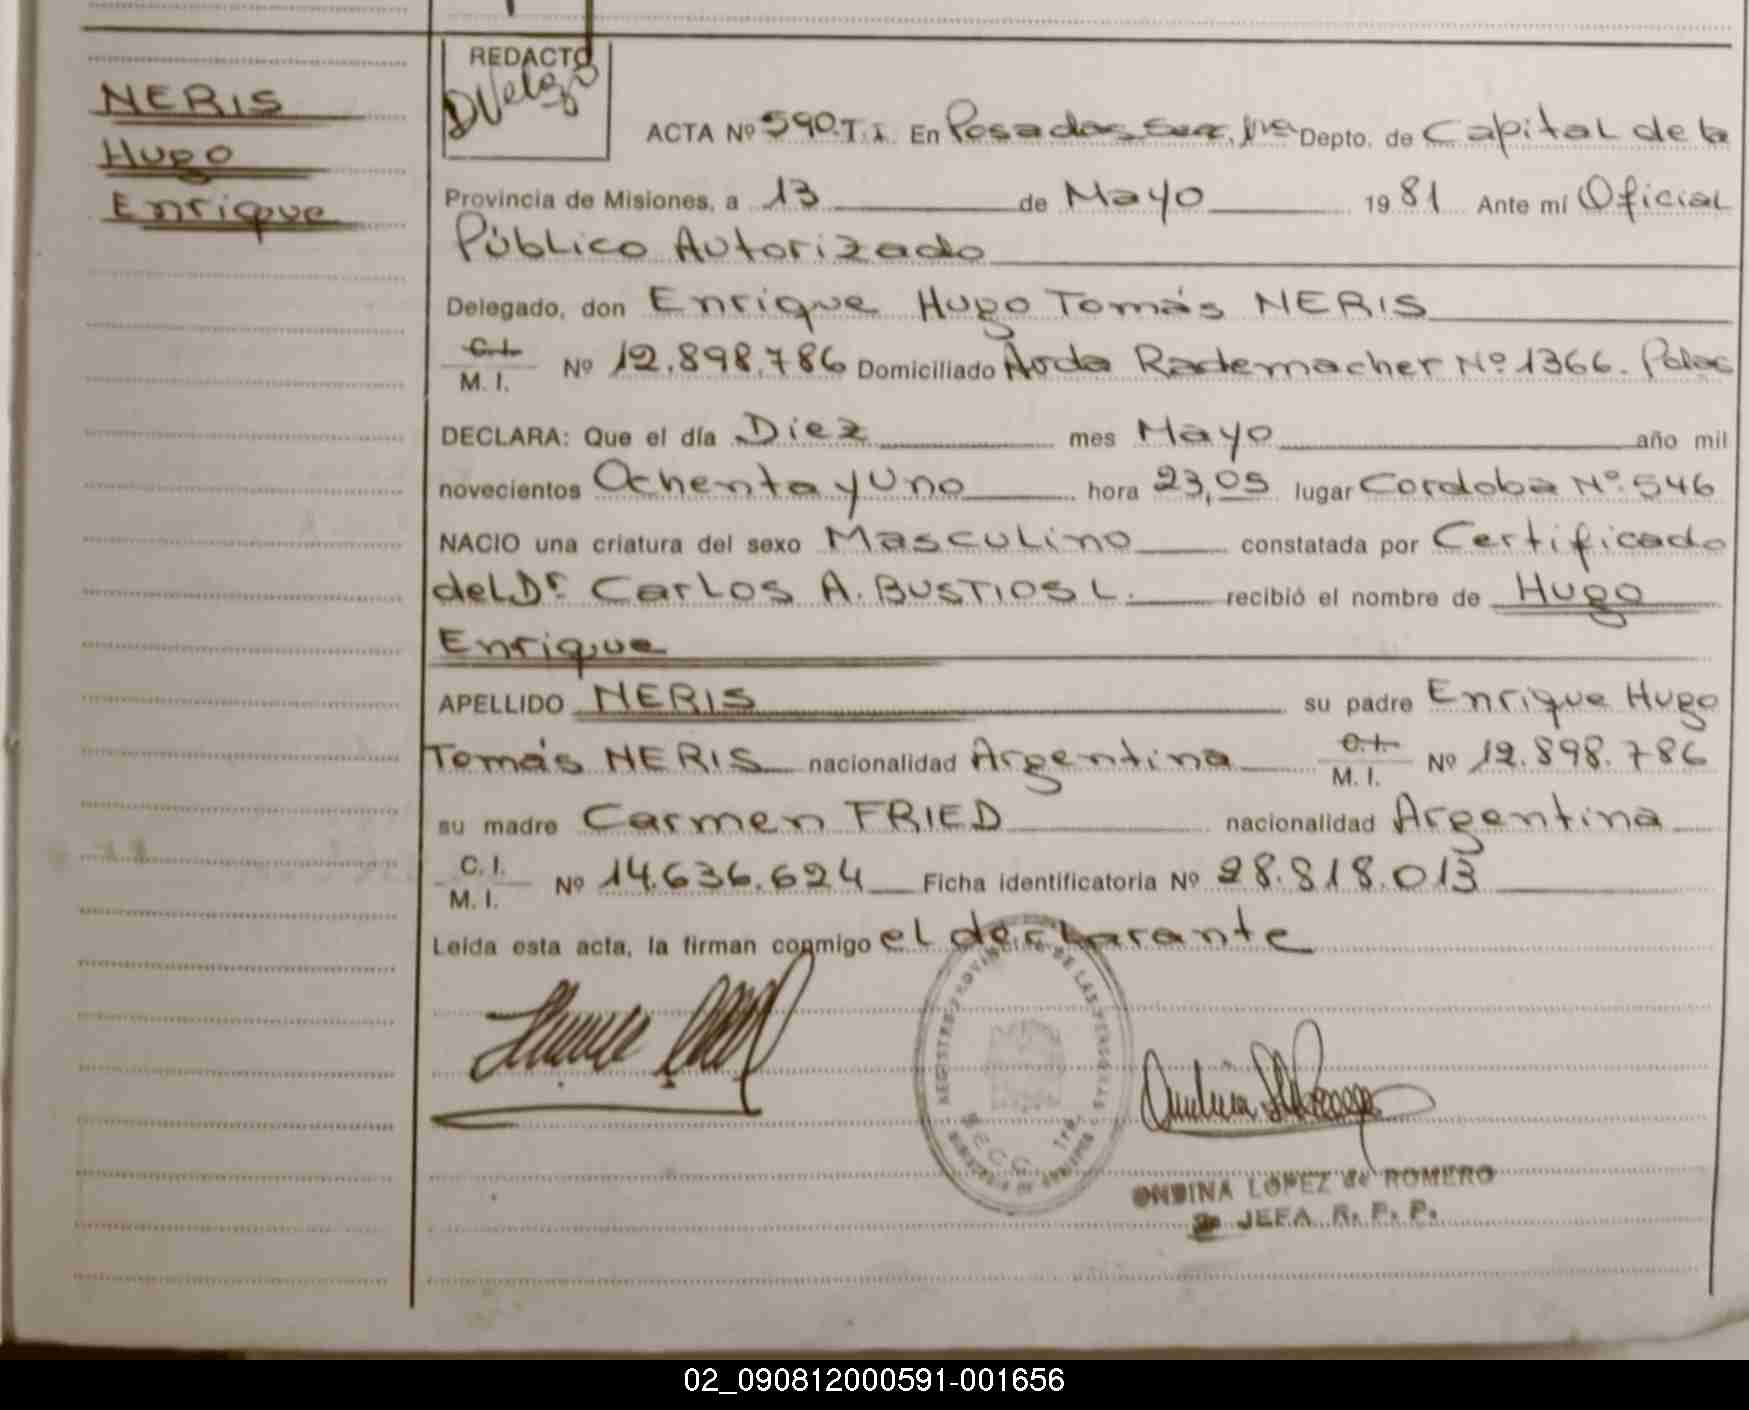 NERIS
Hugo
Enrique
REDACTO
DVelazo
ACTA Nº 590. T. I. En Posadas Secc. 1ra Depto. de Capital de la
Provincia de Misiones, a 13 de Mayo 1981 Ante mí Oficial
Público Autorizado
Delegado, don Enrique Hugo Tomás NERIS
C.I. M. I. Nº 12.898.786 Domiciliado Avda Rademacher Nº 1366. Pdas
DECLARA: Que el día Diez mes Mayo año mil
novecientos Ochenta y Uno hora 23,05 lugar Cordoba Nº 546
NACIO una criatura del sexo Masculino constatada por Certificado
del Dr. Carlos A. BUSTIOS L. recibió el nombre de Hugo
Enrique
APELLIDO NERIS su padre Enrique Hugo
Tomás NERIS nacionalidad Argentina C.I. M. I. Nº 12.898.786
su madre Carmen FRIED nacionalidad Argentina
C. I. M. I. Nº 14.636.624 Ficha identificatoria Nº 28.818.013
Leída esta acta, la firman conmigo el declarante
REGISTRO PROVINCIAL DE LAS PERSONAS
ONDINA LOPEZ de ROMERO
JEFA R. P. P.
02_090812000591-001656